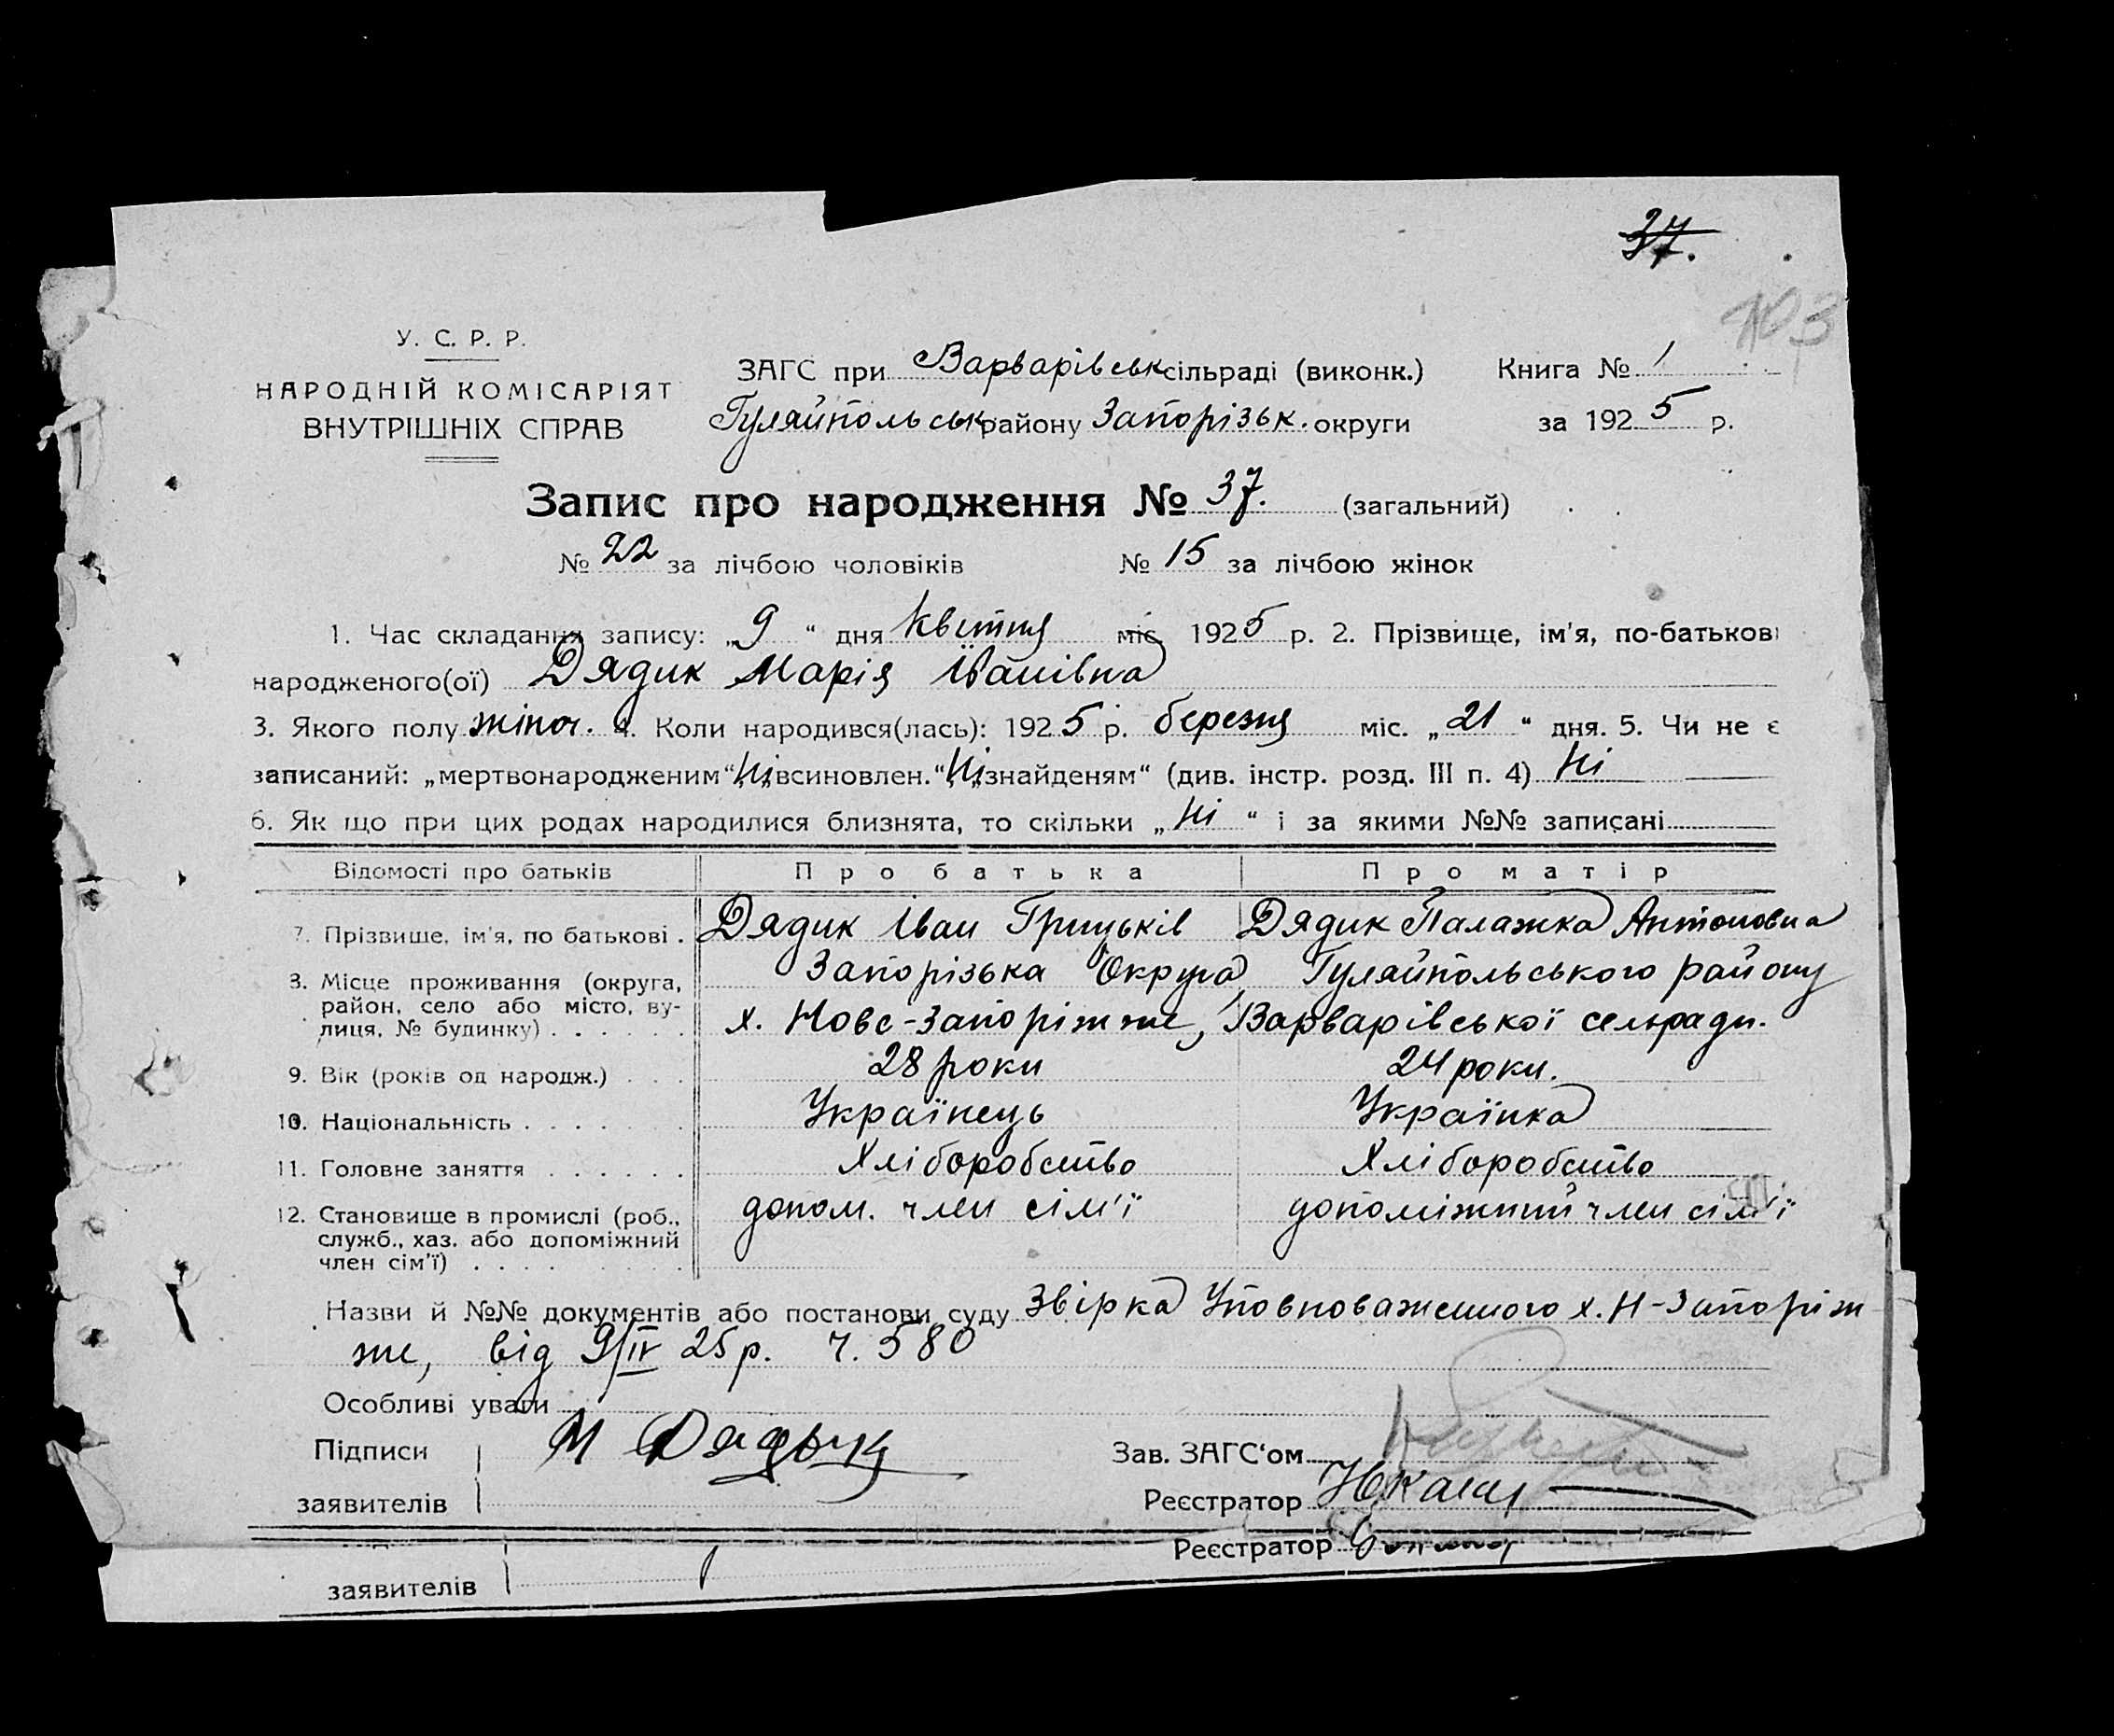 37.
103
У. С. Р. Р.
НАРОДНІЙ КОМІСАРІЯТ
ВНУТРІШНІХ СПРАВ
ЗАГС при Варварівськ сільраді (виконк.) Книга № 1
Гуляйпольськ району Запорізьк. округи за 1925 р.
Запис про народження № 37. (загальний)
№ 22 за лічбою чоловіків № 15 за лічбою жінок
1. Час складання запису: „9“ дня квітня міс. 1925 р. 2. Прізвище, ім'я, по-батькові
народженого(ої) Дядик Марія Іванівна
3. Якого полу жіноч. 4. Коли народився(лась): 1925 р. березня міс. „21“ дня. 5. Чи не є
записаний: „мертвонародженим“ Ні „всиновлен.“ Ні „знайденям“ (див. інстр. розд. III п. 4) Ні
6. Як що при цих родах народилися близнята, то скільки „Ні“ і за якими №№ записані
Відомості про батьків Про батька Про матір
7. Прізвище, ім'я, по батькові . Дядик Іван Грицьків Дядик Палажка Антоновна
8. Місце проживання (округа, Запорізька Округа, Гуляйпольського району
район, село або місто, ву-
лиця, № будинку) . . . . . . х. Нове-Запоріжже, Варварівської сельради.
9. Вік (років од народж.) . . . 28 роки 24 роки.
10. Національність . . . . . . . Українець Українка
11. Головне заняття . . . . . . Хліборобство Хліборобство
12. Становище в промислі (роб., допом. член сім'ї допоміжний член сім'ї
служб., хаз. або допоміжний
член сім'ї) . . . .
Назви й №№ документів або постанови суду Звірка Уповноваженного х. Н-Запоріж
же, від 9/IV 25 р. ч. 580
Особливі уваги
Підписи М Дядык Зав. ЗАГС'ом
заявителів Реєстратор
Реєстратор
заявителів